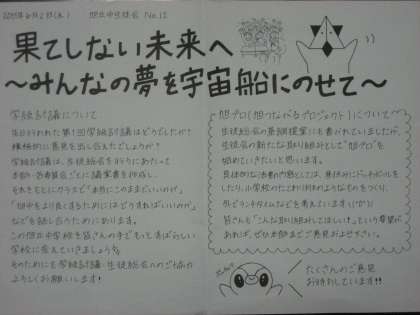 旭丘中生徒会 No.12
果てしない未来へ
〜みんなの夢を宇宙船にのせて〜
学級討議について
先日行われた第1回学級討議はどうでしたか？
積極的に意見を出し合えたでしょうか？
学級討議は、生徒総会を行うにあたって
本部・各委員会ごとに議案書を作成し、
それをもとにクラスで「本当にこのままでいいのか」
「旭中をより良くするためにはどうすればいいのか」
などを話し合うためにあります。
この旭丘中学校を皆さんの手でもっとすばらしい
学校に変えていきましょう！
そのためにも学級討議・生徒総会へのご協力
よろしくお願いします！
旭プロ(旭つながるプロジェクト)について
生徒総会の議案にも書かれていましたが、
生徒会の新たな取り組みとして"旭プロ"を
始めていきたいと思います。
具体的な活動内容としては、
したり、小学校の
ランチタイムなどを考えています(いか)
皆さんも"こんな取り組みしてほしい！"という希望が
あれば、ぜひ本部までご意見およせ下さい。
たくさんのご意見
お待ちしています!!